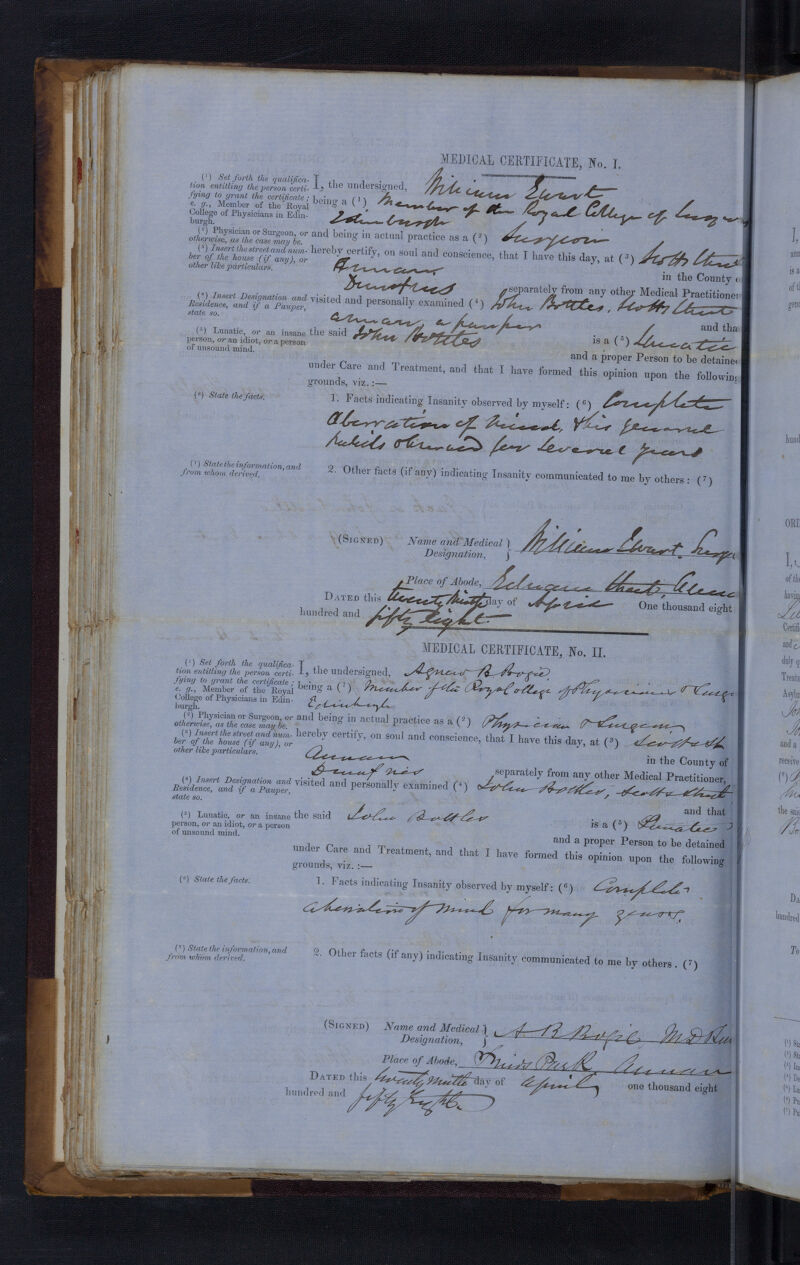 MEDICAL CERTIFICATE, No. I.
(1) Set forth the qualifica-
tion entitling the person certi-
fying to grant the certificate;
e. g., Member of the Royal
College of Physicians in Edin-
burgh.
I, the undersigned, William Ewart
being a (1) Member of the Royal College of
Edinburgh
(2) Physician or Surgeon, or
otherwise, as the case may be.
and being in actual practice as a (2) Surgeon
(3) Insert the street and num-
ber of the house (if any), or
other like particulars.
hereby certify, on soul and conscience, that I have this day, at (3) Scotts Street
Annan in the County o
Dumfries separately from any other Medical Practitioner
(4) Insert Designation and
Residence, and if a Pauper,
state so.
visited and personally examined (4) John Bottles, Scotts Street
Annan, a pauper and tha
(5) Lunatic, or an insane
person, or an idiot, or a person
of unsound mind.
the said John Bottles is a (5) Lunatic
and a proper Person to be detaine
under Care and Treatment, and that I have formed this opinion upon the following
grounds, viz. :—
(6) State the facts.
1. Facts indicating Insanity observed by myself: (6) Complete
Aberration of mind, this general
habits observed for several years
(7) State the information, and
from whom derived.
2. Other facts (if any) indicating Insanity communicated to me by others : (7)
(SIGNED) Name and Medical
Designation, William Ewart, Surge
Place of Abode, Street, Annan
DATED this twenty ninth day of April One thousand eight
hundred and fifty eight.
MEDICAL CERTIFICATE, No. II.
(1) Set forth the qualifica-
tion entitling the person certi-
fying to grant the certificate;
e. g., Member of the Royal
College of Physicians in Edin-
burgh.
I, the undersigned, Agnew B Bogie
being a (1) Member of the Royal College of Physicians & Surge
Edinburgh
(2) Physician or Surgeon, or
otherwise, as the case may be.
and being in actual practice as a (2) Physician & Surgeon
(3) Insert the street and num-
ber of the house (if any), or
other like particulars.
hereby certify, on soul and conscience, that I have this day, at (3) Scotts St
Annan in the County of
Dumfries separately from any other Medical Practitioner,
(4) Insert Designation and
Residence, and if a Pauper,
state so.
visited and personally examined (4) John Bottles, Scotts Street
and that
(5) Lunatic, or an insane
person, or an idiot, or a person
of unsound mind.
the said John Bottles is a (5) Lunatic
and a proper Person to be detained
under Care and Treatment, and that I have formed this opinion upon the following
grounds, viz. :—
(6) State the facts.
1. Facts indicating Insanity observed by myself: (6) Complete
aberration of mind for many years.
(7) State the information, and
from whom derived.
2. Other facts (if any) indicating Insanity communicated to me by others. (7)
(SIGNED) Name and Medical
Designation, A B Bogie M D
Place of Abode, Park Annan
DATED this twenty ninth day of April one thousand eight
hundred and fifty Eight.